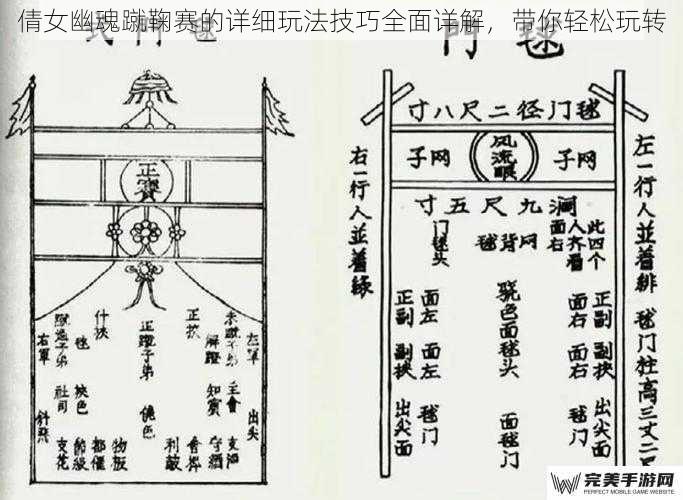 倩女幽魂蹴鞠赛的详细玩法技巧全面详解，带你轻松玩转
門毬
寸八尺二径门毬
子网
风流眼
子网
寸五尺九涧
左一行人並着緋
毬门柱高三丈二尺
右一行人並着緑
此四个
人齐看
面右
网
背
毬
门
毬头
正副
副挾
出尖面
面右
面右
毬门
骁色面毬头
面毬门
面左
面左
毬门
正副
副挾
出尖面
正賽
左軍
出尖
主會
解蹬
知賓
正挾
正蹴子弟
什挾
毬
挾色
社司
右軍
斜飛
守酒
利鼓
物板
都催
完美手游网
PERFECT MOBILE GAME WEBSITE